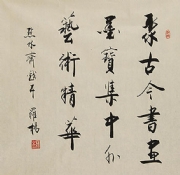 聚古今書畫
墨寶集中外
藝術精華
羅楊